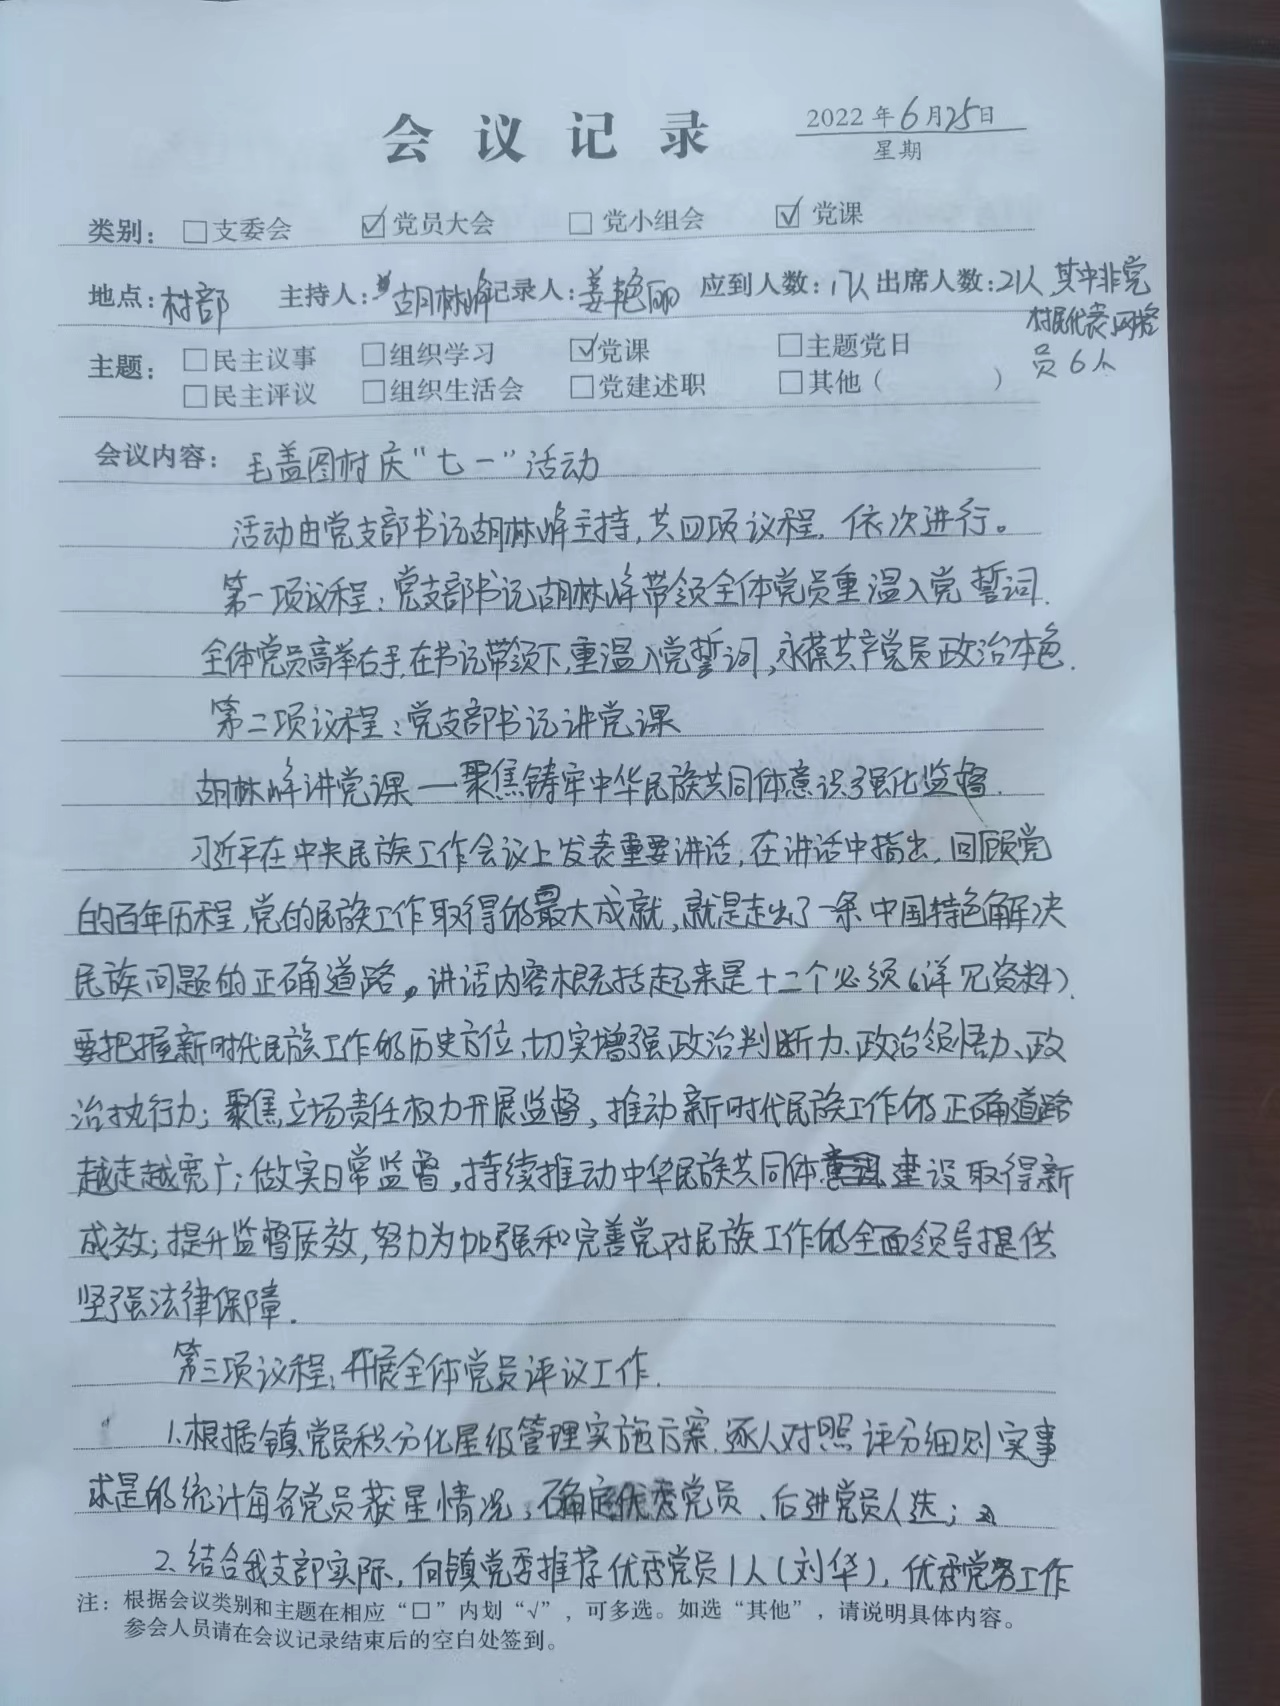 会议记录
2022年6月25日
星期
类别：□支委会 ☑党员大会 □党小组会 ☑党课
地点：村部 主持人：胡林峰 记录人：姜艳丽 应到人数：17人 出席人数：21人 其中非党
村民代表、网格
员6人
主题：□民主议事 □组织学习 ☑党课 □主题党日
□民主评议 □组织生活会 □党建述职 □其他（ ）
会议内容：毛盖图村庆“七一”活动
活动由党支部书记胡林峰主持，共四项议程，依次进行。
第一项议程：党支部书记胡林峰带领全体党员重温入党誓词.
全体党员高举右手，在书记带领下，重温入党誓词，永葆共产党员政治本色.
第二项议程：党支部书记讲党课
胡林峰讲党课—聚焦铸牢中华民族共同体意识强化监督.
习近平在中央民族工作会议上发表重要讲话，在讲话中指出，回顾党
的百年历程，党的民族工作取得的最大成就，就是走出了一条中国特色解决
民族问题的正确道路。讲话内容概括起来是十二个必须（详见资料）.
要把握新时代民族工作的历史方位，切实增强政治判断力、政治领悟力、政
治执行力；聚焦立场责任权力开展监督，推动新时代民族工作的正确道路
越走越宽广；做实日常监督，持续推动中华民族共同体建设取得新
成效；提升监督质效，努力为加强和完善党对民族工作的全面领导提供
坚强法律保障.
第三项议程：开展全体党员评议工作.
1.根据镇党员积分化星级管理实施方案，逐人对照评分细则实事
求是的统计每名党员获星情况，确定优秀党员、后进党员人选；
2.结合我支部实际，向镇党委推荐优秀党员1人（刘华），优秀党务工作
注：根据会议类别和主题在相应“□”内划“√”，可多选。如选“其他”，请说明具体内容。
参会人员请在会议记录结束后的空白处签到。